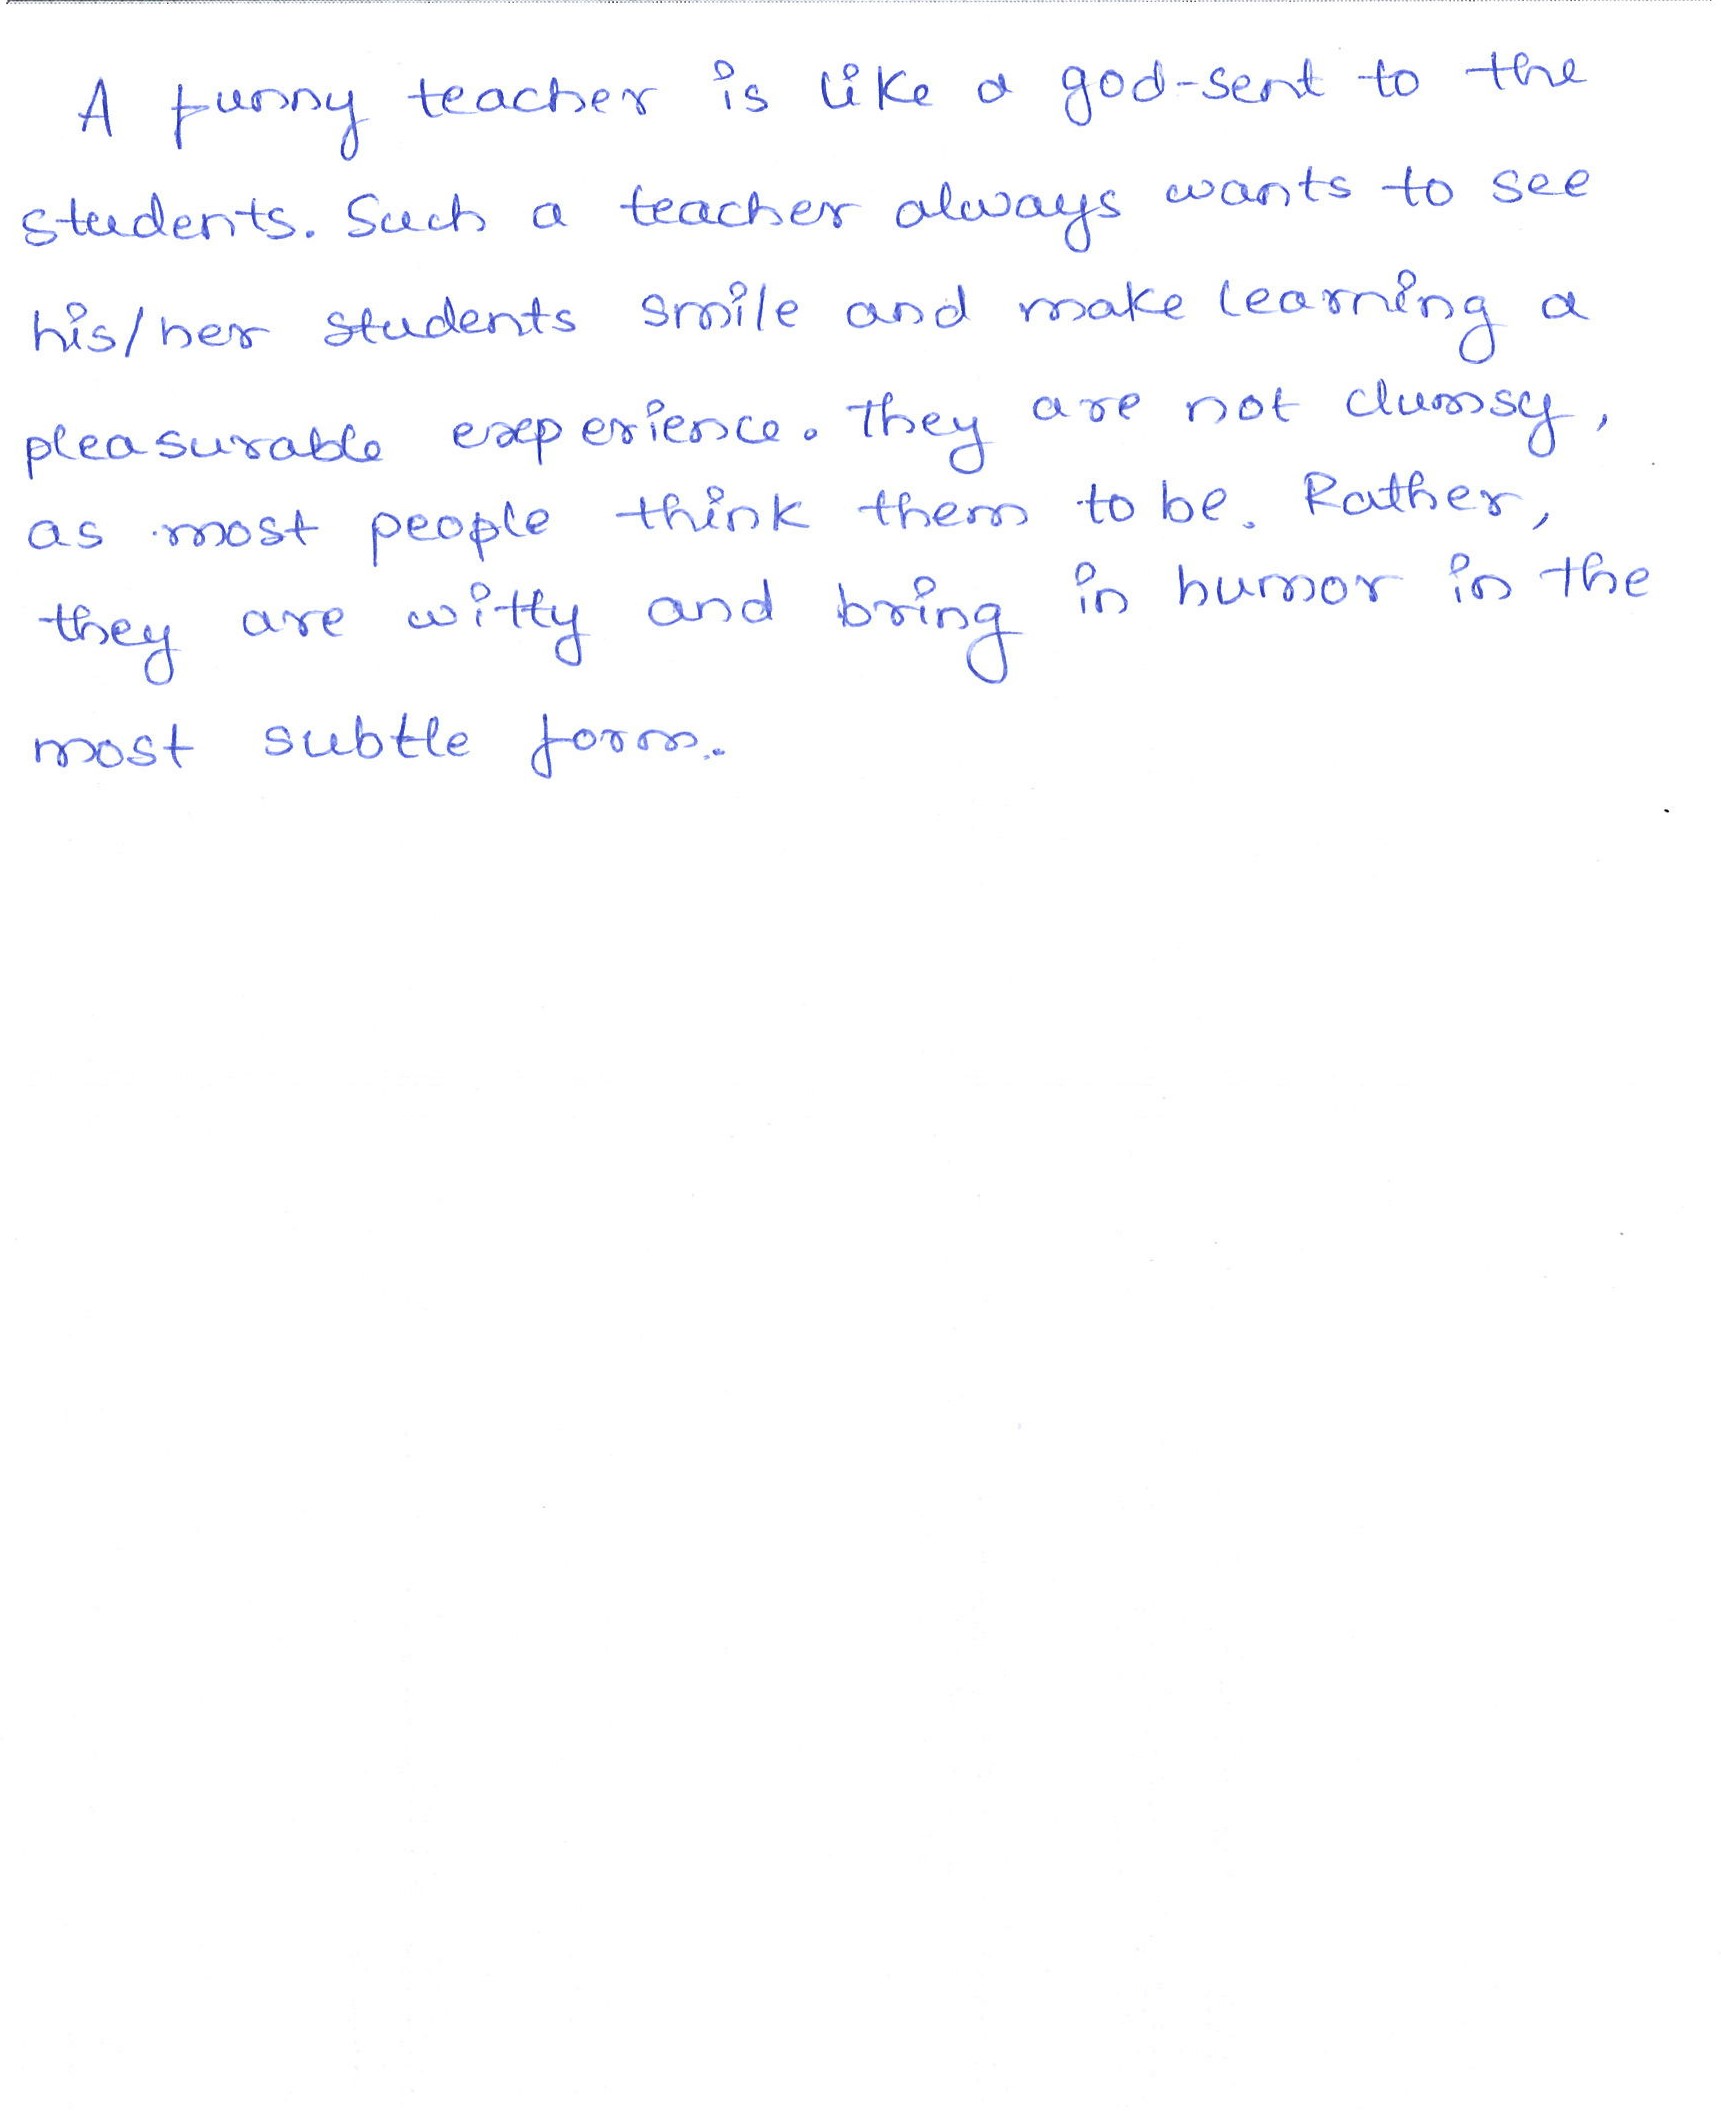 A funny teacher is like a god-sent to the
students. Such a teacher always wants to see
his/her students smile and make learning a
pleasurable experience. They are not clumsy,
as most people think them to be. Rather,
they are witty and bring in humor in the
most subtle form.